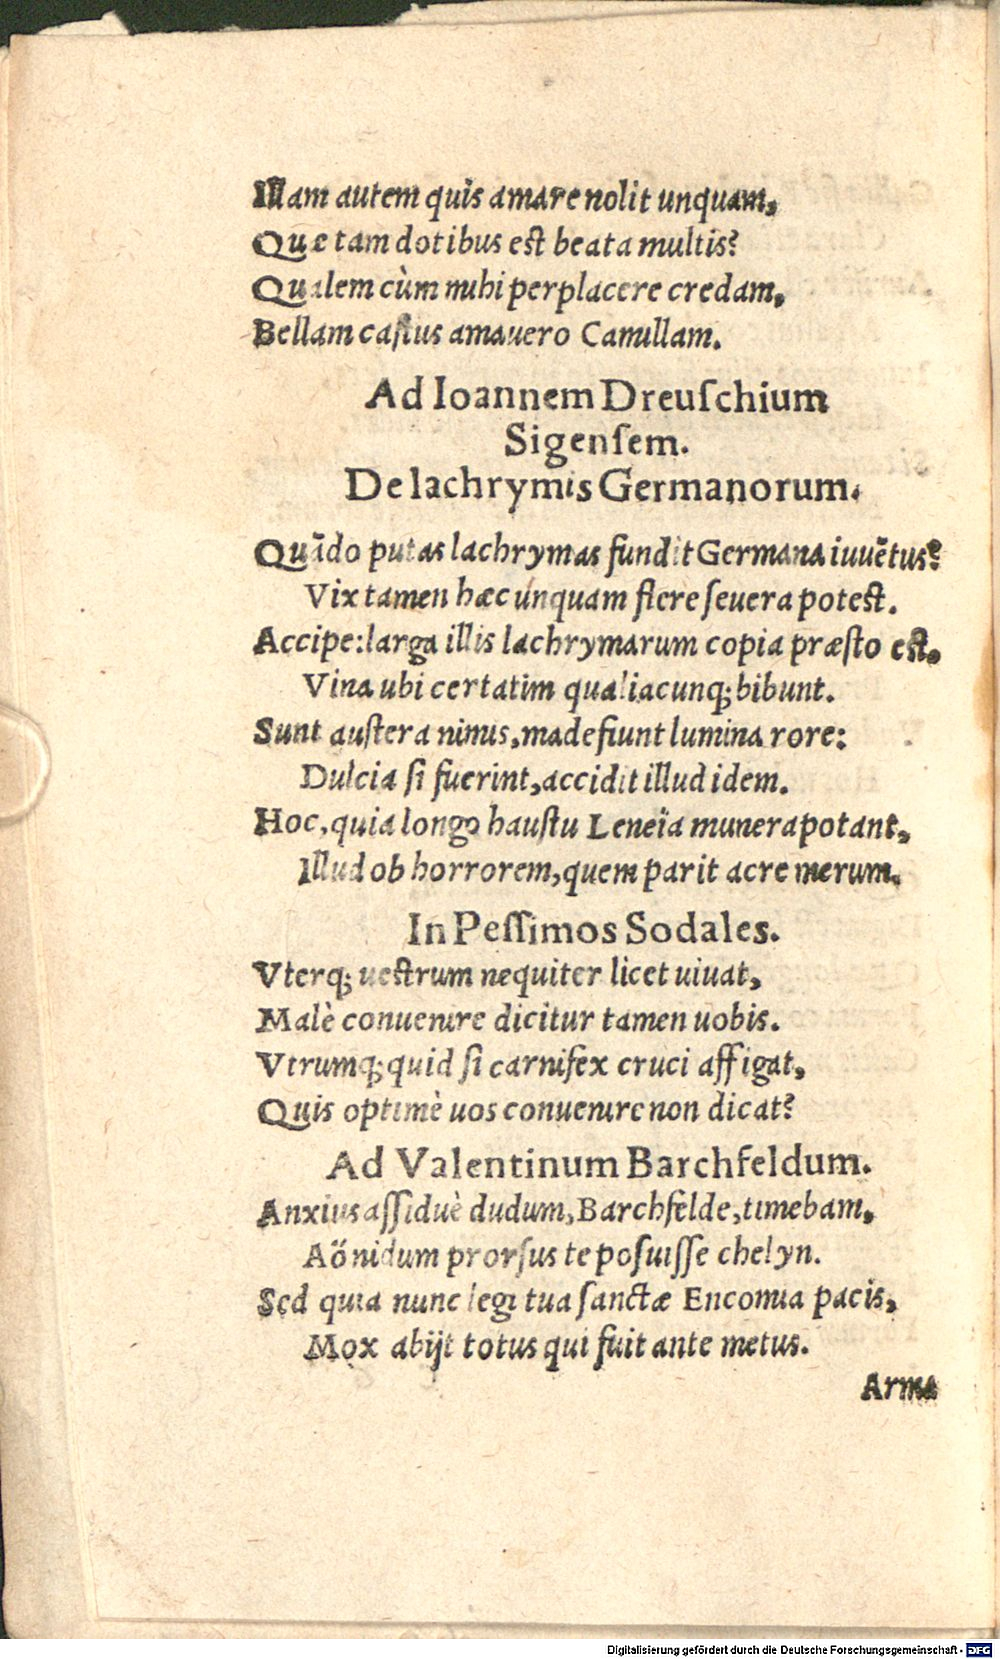 Illam autem quis amare nolit unquam,
Quæ tam dotibus est beata multis?
Qualem cùm mihi perplacere credam,
Bellam castus amauero Camillam.
Ad Ioannem Dreuſchium
Sigenſem.
De lachrymis Germanorum.
Quãdo putas lachrymas fundit Germana iuuẽtus?
Vix tamen hæc unquam flere ſeuera potest.
Accipe: larga illis lachrymarum copia præſto est,
Vina ubi certatim qualiacunq; bibunt.
Sunt auſtera nimis, madefiunt lumina rore:
Dulcia ſi fuerint, accidit illud idem.
Hoc, quia longo hauſtu Leneïa munera potant,
Illud ob horrorem, quem parit acre merum.
In Peſſimos Sodales.
Vterq; uestrum nequiter licet uiuat,
Malè conuenire dicitur tamen uobis.
Vtrumq; quid ſi carnifex cruci affigat,
Quis optimè uos conuenire non dicat?
Ad Valentinum Barchfeldum.
Anxius aſſiduè dudum, Barchfelde, timebam,
Aönidum prorſus te poſuiſſe chelyn.
Sed quia nunc legi tua ſanctæ Encomia pacis,
Mox abijt totus qui fuit ante metus.
Arma
Digitalisierung gefördert durch die Deutsche Forschungsgemeinschaft - DFG